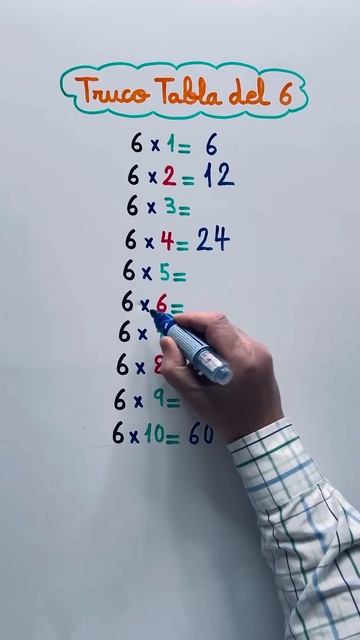 Truco Tabla del 6
6 x 1 = 6
6 x 2 = 12
6 x 3 =
6 x 4 = 24
6 x 5 =
6 x 6 =
6 x
6 x
6 x 9 =
6 x 10 = 60